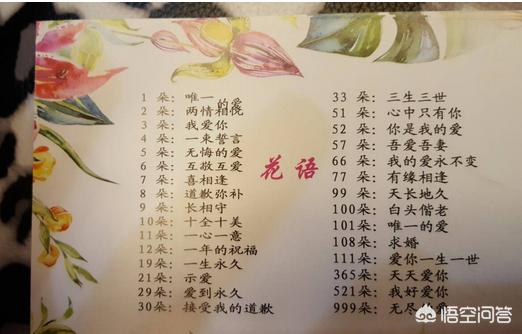 1 朵：唯一
的爱
2 朵：两情相悦
3 朵：我爱你
4 朵：一束誓言
5 朵：无悔的爱
6 朵：互敬互爱
7 朵：喜相逢
8 朵：道歉弥补
9 朵：长相守
10朵：十全十美
11朵：一心一意
12朵：一年的祝福
19朵：一生永久
21朵：示爱
29朵：爱到永久
30朵：接受我的道歉
花语
33 朵：三生三世
51 朵：心中只有你
52 朵：你是我的爱
57 朵：吾爱吾妻
66 朵：我的爱永不变
77 朵：有缘相逢
99 朵：天长地久
100朵：白头偕老
101朵：唯一的爱
108朵：求婚
111朵：爱你一生一世
365朵：天天爱你
521朵：我好爱你
999朵：无尽的爱
悟空问答